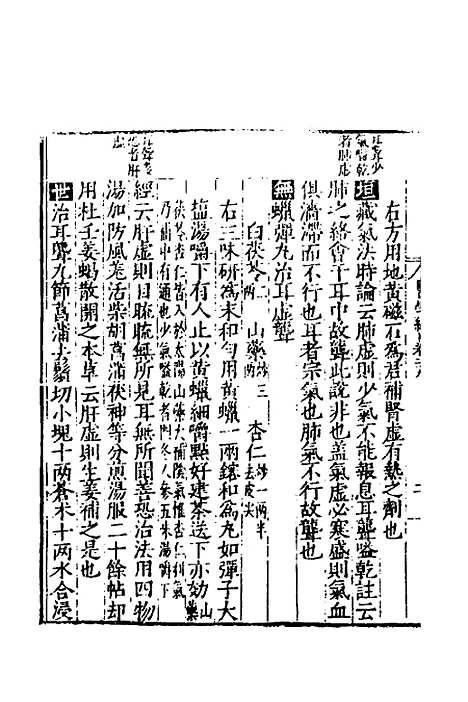 右方用地黃磁石為君補腎虛有熱之劑也
耳聾少
氣嗌乾
者肺虛
垣藏氣法時論云肺虛則少氣不能報息耳聾嗌乾註云
肺之絡會于耳中故聾此說非也蓋氣虛必寒盛則氣血
俱滯而不行也耳者宗氣也肺氣不行故聾也
無蠟彈丸治耳虛聾
白茯苓二兩 山藥炒三兩 杏仁炒一兩半去皮尖
右三味研為末和勻用黃蠟一兩鎔和為丸如彈子大
塩湯嚼下有人止以黃蠟細嚼點好建茶送下亦効山藥
茯苓杏仁皆入於太陽山藥大補陰氣惟杏仁利氣
乃補中有通也少氣嗌乾者門冬人參五朱湯嚼下
耳聾善
恐者肝
虛
經云肝虛則目𥆨𥆨無所見耳無所聞善恐治法用四物
湯加防風羗活柴胡菖蒲茯神等分煎湯服二十餘帖却
用杜壬姜蝎散開之本草云肝虛則生姜補之是也
世治耳聾九節菖蒲大鬚切小塊十兩蒼朮十兩水合浸